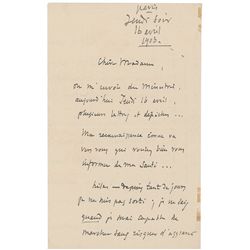 Paris
Jeudi soir
16 avril
1903.
Chère Madame,
on m'envoie du Ministère,
aujourd'hui Jeudi 16 avril,
plusieurs lettres et dépêches...
Ma reconnaissance envers
vous qui voulez bien vous
informer de ma santé...
Hélas depuis tant de jours
je ne suis pas sorti ; je ne sais
quand je serai capable de
marcher sans risquer d'aggraver